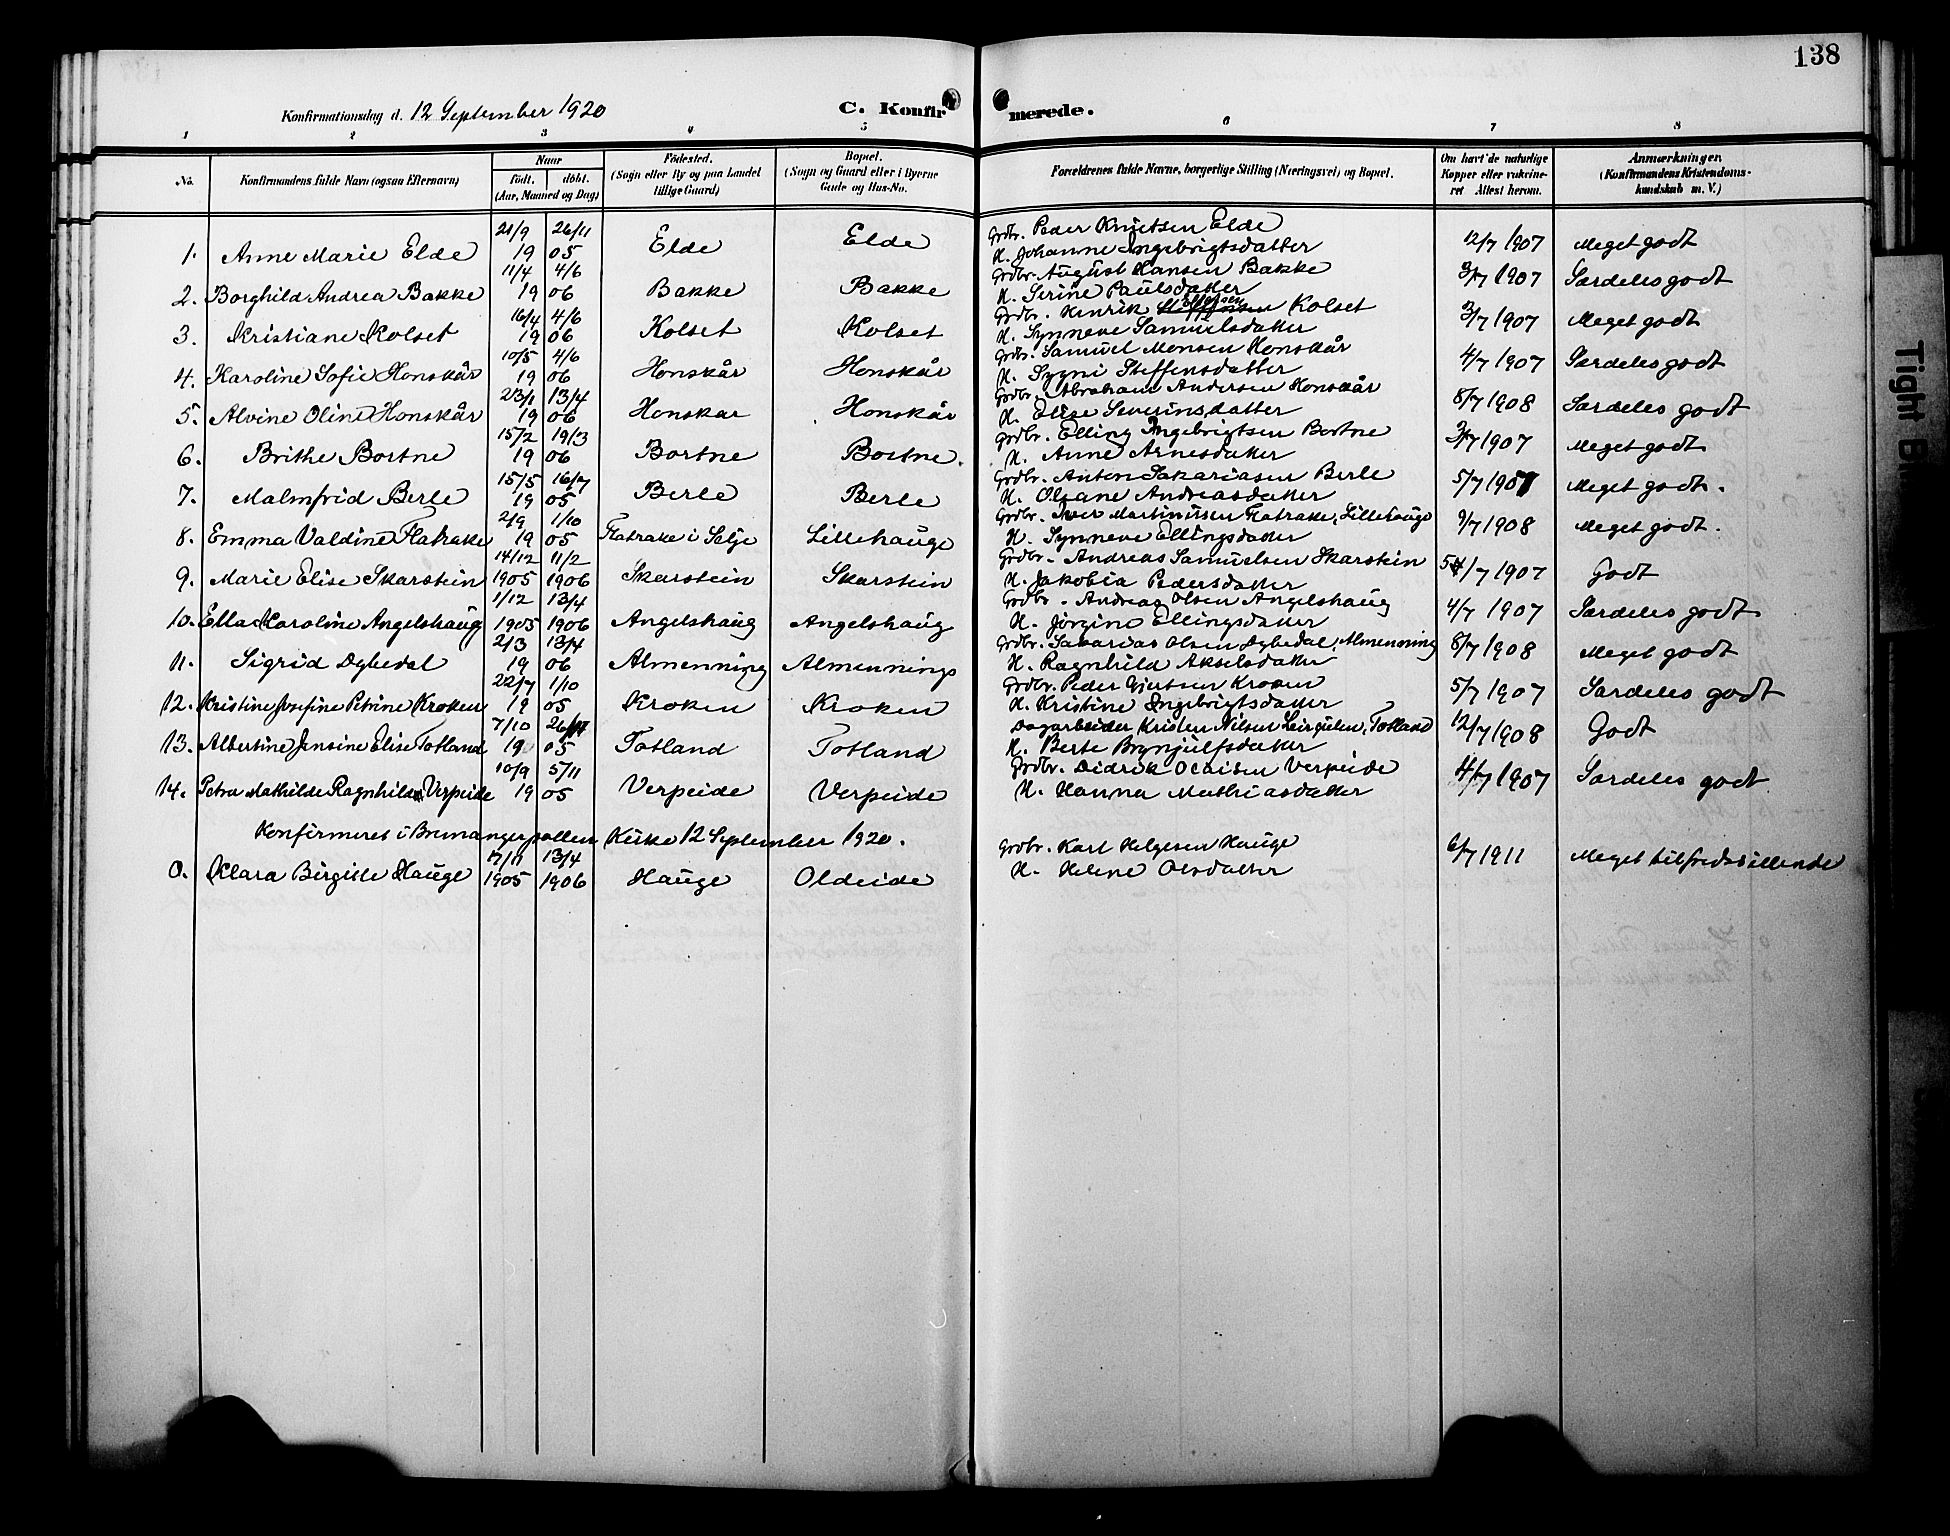 138
Konfirmationsdag d. 12 September 1920
C. Konfirmerede.
1 2 3 4 5 6 7 8
No.
Konfirmandens fulde Navn (ogsaa Efternavn)
Naar
født. døbt.
(Aar, Maaned og Dag)
Fødested.
(Sogn eller By og paa Landet tillige Gaard)
Bopæl.
(Sogn og Gaard eller i Byerne Gade og Hus-No.
Forældrenes fulde Navne, borgerlige Stilling (Næringsvei) og Bopæl.
Om havt de naturlige Kopper eller vakcineret Attest herom.
Anmærkninger
(Konfirmandens Kristendomskundskab m. V.)
21/9 26/11 Grdbr. Peder Knutsen Elde
1. Anne Marie Elde 19 05 Elde Elde H. Johanne Ingebrigtsdatter 12/7 1907 Meget godt
11/4 4/6 Grdbr. August Hansen Bakke
2. Borghild Andrea Bakke 19 06 Bakke Bakke H. Serine Paulsdatter 3/7 1907 Særdeles godt
16/4 4/6 Grdbr. Henrik Kolset
3. Kristiane Kolset 19 06 Kolset Kolset H. Synneve Samuelsdatter 3/7 1907 Meget godt
10/5 4/6 Grdbr. Samuel Monsen Honskår
4. Karoline Sofie Honskår 19 06 Honskår Honskår H. Sygni Steffensdatter 4/7 1907 Særdeles godt
23/1 13/4 Grdbr. Abraham Andersen Honskår
5. Alvine Oline Honskår 19 06 Honskar Honskår H. Elise Severinsdatter 8/7 1908 Særdeles godt
15/2 19/3 Grdbr. Elling Ingebrigtsen Bortne
6. Brithe Bortne 19 06 Bortne Bortne. H. Anne Arnesdatter 3/7 1907 Meget godt
15/5 16/7 Grdbr. Anton Sakariasen Berle
7. Malmfrid Berle 19 05 Berle Berle H. Oliane Andreasdatter 5/7 1907 Meget godt.
2/9 1/10 Grdbr. Iver Martinusen Flatrake, Lillehauge
8. Emma Valdine Flatrake 19 05 Flatrake i Selje Lillehauge H. Synneve Ellingsdatter 9/7 1908 Meget godt.
14/12 11/2 Grdbr. Andreas Samuelsen Skarstein
9. Marie Elise Skarstein 1905 1906 Skarstein Skarstein H. Jakobia Pedersdatter 5/7 1907 Godt
1/12 13/4 Grdbr. Andreas Olsen Angelshaug
10. Ella Karoline Angelshaug 1905 1906 Angelshaug Angelshaug H. Jörgine Ellingsdatter 4/7 1907 Særdeles godt
2/3 13/4 Grdbr. Sakarias Olsen Dybedal, Almenning
11. Sigrid Dybedal 19 06 Almenning Almennings H. Ragnhild Akselsdatter 8/7 1908 Meget godt
22/7 1/10 Grdbr. Peder Kroken
12. Kristine Josefine Petrine Kroken 19 05 Kroken Kroken H. Kristine Ingebrigtsdatter 5/7 1907 Særdeles godt
7/10 26/11 Dagarbeider Kristen Nilsen Leirgulen, Totland
13. Albertine Jensine Elise Totland 19 05 Totland Totland H. Berte Brynjulfsdatter 12/7 1908 Godt
10/9 5/11 Grdbr. Didrik Olaisen Verpeide
14. Petra Mathilde Ragnhild Verpeide 19 05 Verpeide Verpeide H. Hanna Mathiasdatter 4/7 1907 Særdeles godt
Konfirmeret i Bremangerpollen Kirke 12 September 1920.
13/4 Grdbr. Karl Helgesen Hauge
0. Klara Birgitte Hauge 1905 1906 Hauge Oldeide H. Helene Olsdatter 6/7 1911 Meget tilfredsstillende
Tight Bi